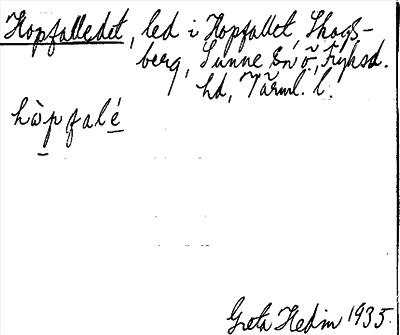 Hopfalledet, led i Hopfallet, Skogs-
berg, Sunne sn ö., Fryksd.
hd, Värml. l.
hò̱pfalé̱
Greta Hedin 1935.